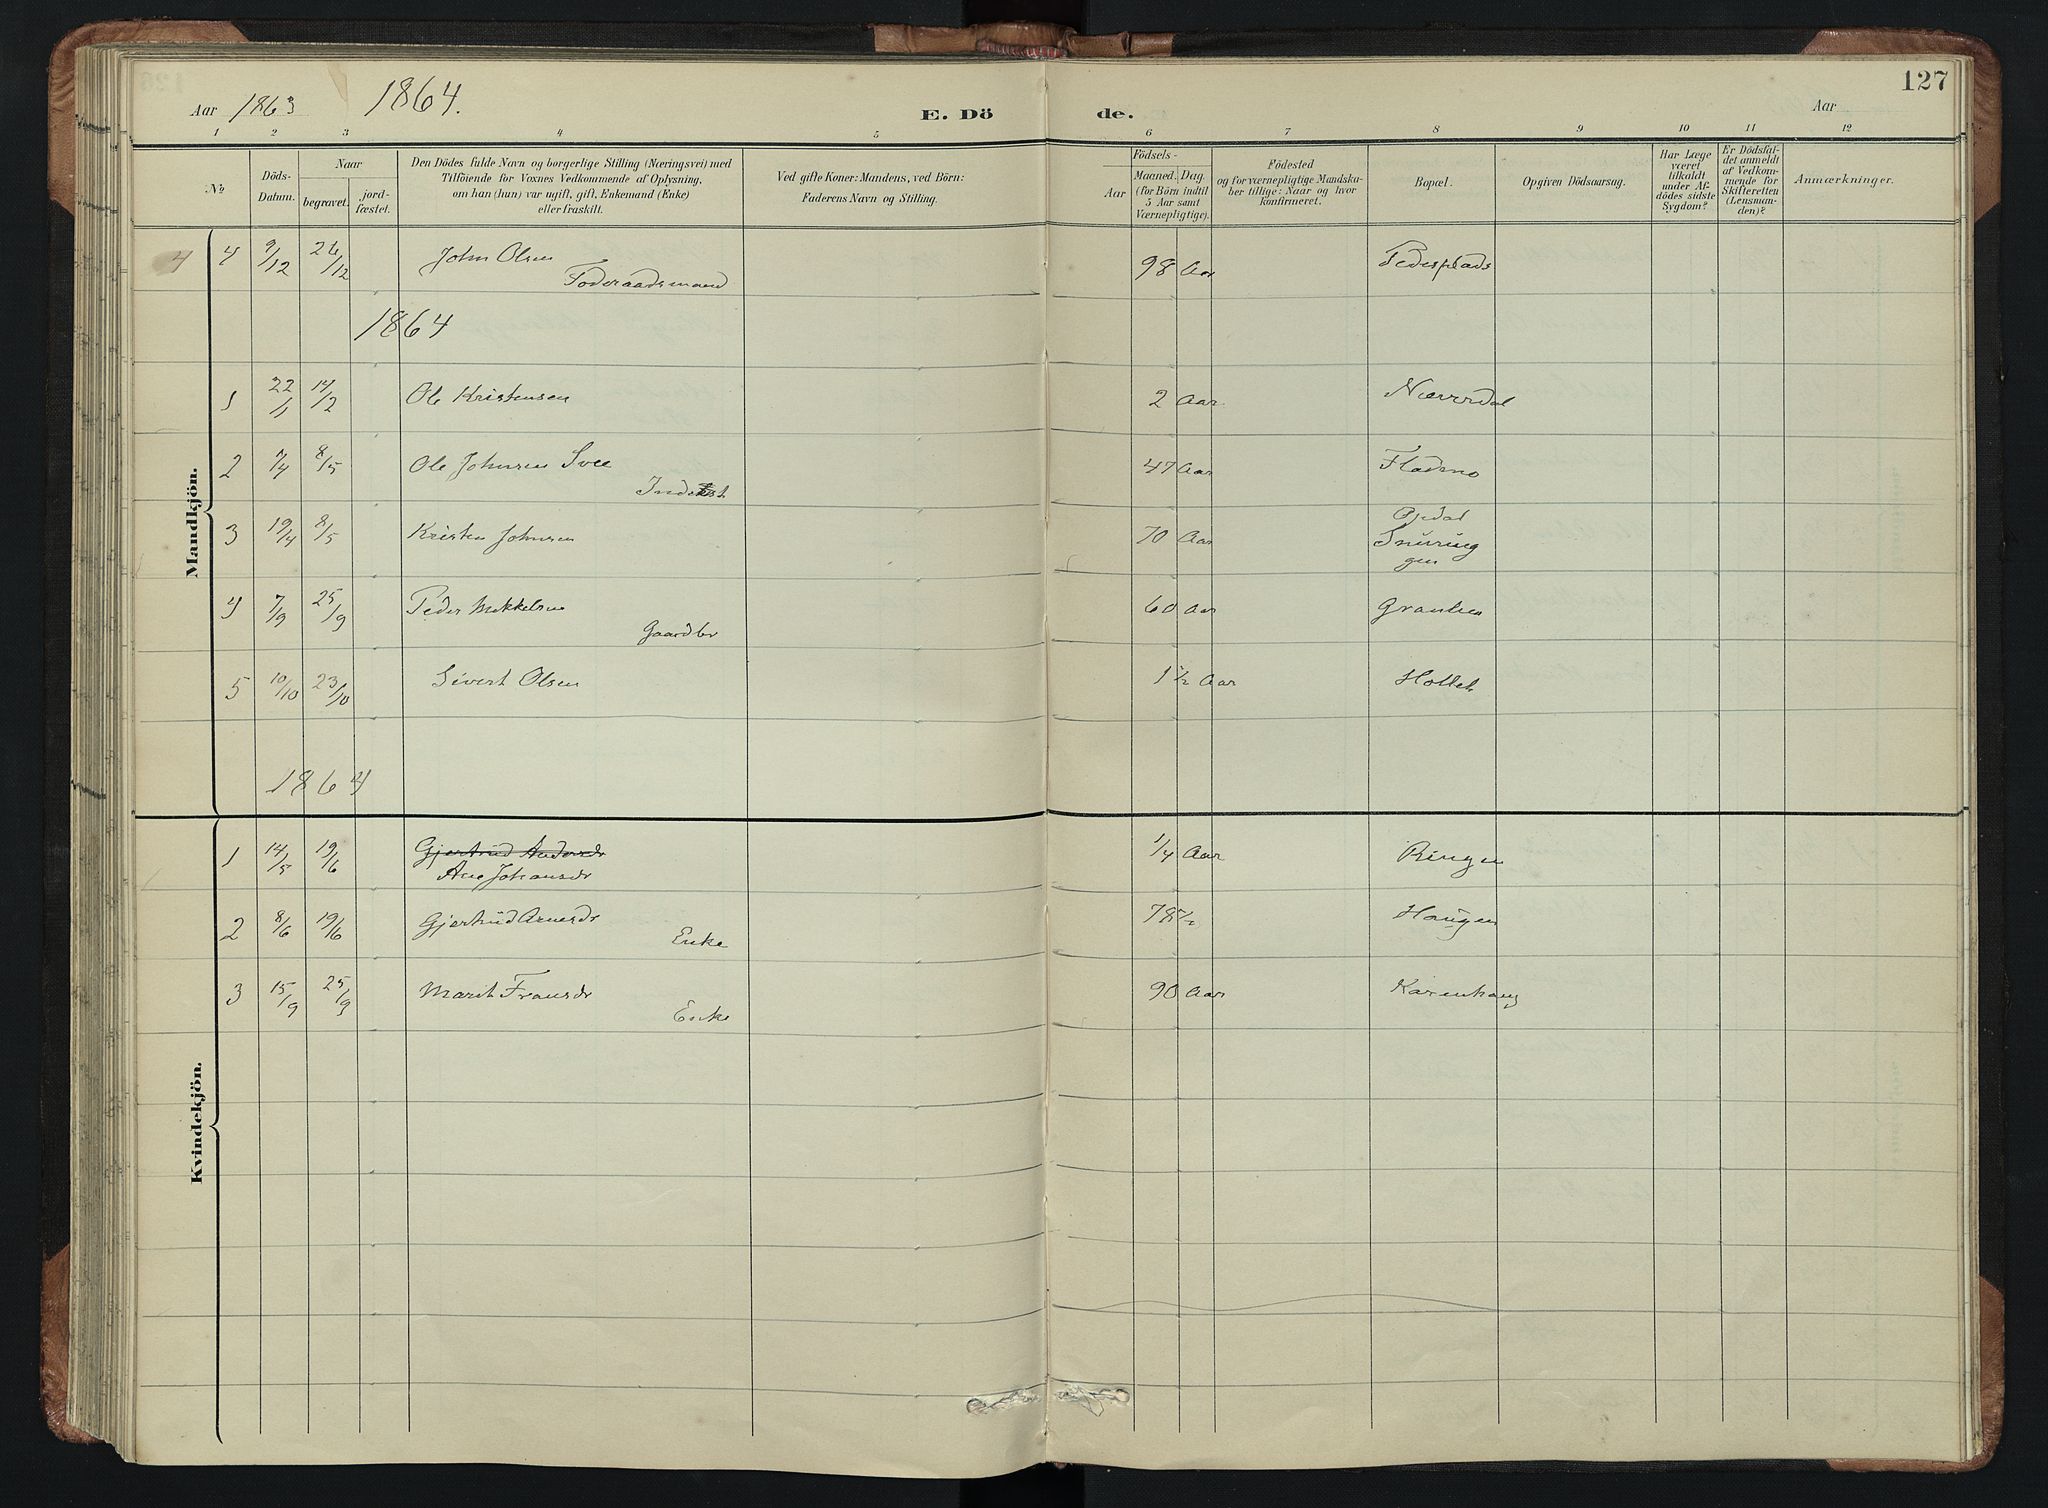 127
Aar 1863 1864.
E. Dö de.
Aar
1 2 3 4 5 6 7 8 9 10 11 12
No
Döds-
Datum.
Naar
begravet.
jord-
fæstet.
Den Dödes fulde Navn og borgerlige Stilling (Næringsvei) med
Tilföiende for Voxnes Vedkommende af Oplysning,
om han (hun) var ugift, gift, Enkemand (Enke)
eller fraskilt.
Ved gifte Koner: Mandens, ved Börn:
Faderens Navn og Stilling.
Födsels-
Aar
Maaned. Dag.
(for Börn indtil
5 Aar samt
Værnepligtige).
Födested
og for værnepligtige Mandska-
ber tillige: Naar og hvor
konfirmeret.
Bopæl.
Opgiven Dödsaarsag.
Har Læge
været
tilkaldt
under Af-
dödes sidste
Sygdom?
Er Dödsfal-
det anmeldt
af Vedkom-
mende for
Skifteretten
(Lensman-
den)?
Anmærkninger.
Mandkjön.
4 4 9/12 26/12 John Olsen 98 Aar Pedersplads
Föderaadsmand
1864
1 22/1 14/2 Ole Kristensen 2 Aar Næverdal
2 7/4 8/5 Ole Johnsen Svee 47 Aar Fladmo
Inderst
3 19/4 8/5 Kristen Johnsen 70 Aar Snuring
gen
4 7/9 25/9 Peder Mikkelsen 60 Aar Granlien
Gaardbr
5 10/10 23/10 Sivert Olsen 1 1/2 Aar Holtet
1864
Kvindekjön.
1 14/5 19/6 Gjertrud Andersdr 1/4 Aar Ringen
Ane Johansdr
2 8/6 19/6 Gjertrud Arnesdr 78 1/2 Haugen
Enke
3 15/9 25/9 Marit Fransdr 90 Aar Karenhaug
Enke